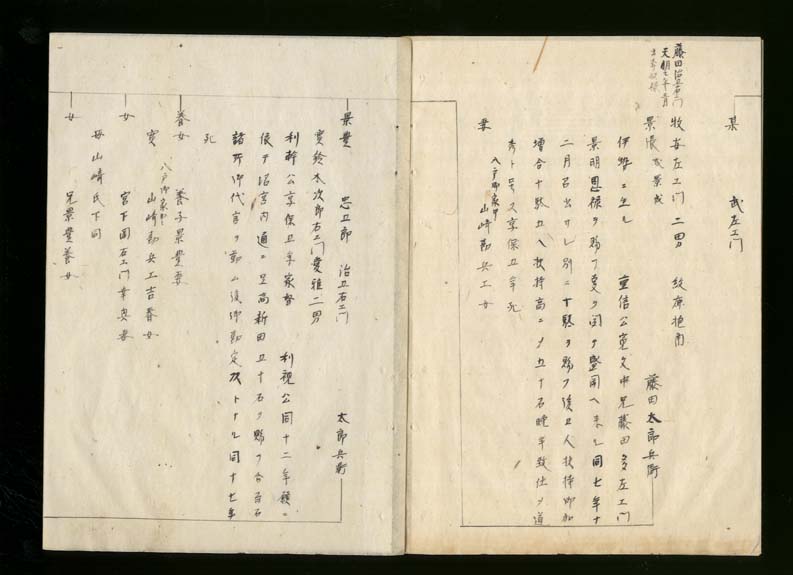 藤田治五右エ門
天明七年五月
某 武左エ門
牧安左エ門二男 紋麻抱角 藤田太郎兵衛
景 成景成
伊勢ニ生ル 重信公寛文中兄藤田多左エ門
景明恩禄ヲ賜フ事ヲ聞テ盛岡ヘ来ル同七年十
二月召出サレ別ニ十駄ヲ賜フ後五人扶持御加
増合十駄五人扶持高ニメ五十石晩年致仕メ道
秀ト号ス享保五年死
妻 八戸御家中 山崎勘兵エ女
景豊 忠五郎 治五右エ門 太郎兵衛
実鈴木次郎右エ門愛雅二男
利幹公享保五年家督 利視公同十二年
ヲ沼宮内通ニ 高新田五十石ヲ賜フ合百石
諸所御代官ヲ勤ム後御勘定 トナル同十七年
死
養女 養子景豊妻
実 八戸御家中 山崎勘兵エ吉春女
女 宮下 右エ門 妻
母山崎氏下同
女 兄景豊養女